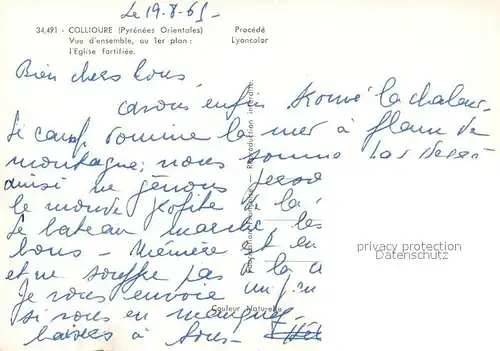 Le 19.8.65
34,491 - COLLIOURE (Pyrénées Orientales)
Vue d'ensemble, au 1er plan :
l'Eglise fortifiée.
Procédé
Lyoncolor
Bien chers tous,
avons enfin trouvé la chaleur.
le camp domine la mer à flanc de
montagne; nous somme
ainsi ne gênons
le monde profite de la
le bateau marche, les
bons - Mémère est en
et ne souffre pas
Je vous envoie un
si vous en manquez
baisers à tous.
Reproduction interdite.
Couleur Naturelle
privacy protection
Datenschutz